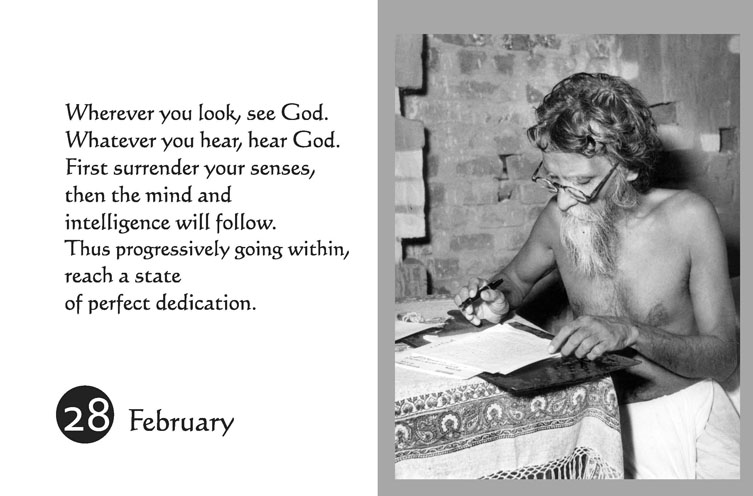 Wherever you look, see God.
Whatever you hear, hear God.
First surrender your senses,
then the mind and
intelligence will follow.
Thus progressively going within,
reach a state
of perfect dedication.
28 February